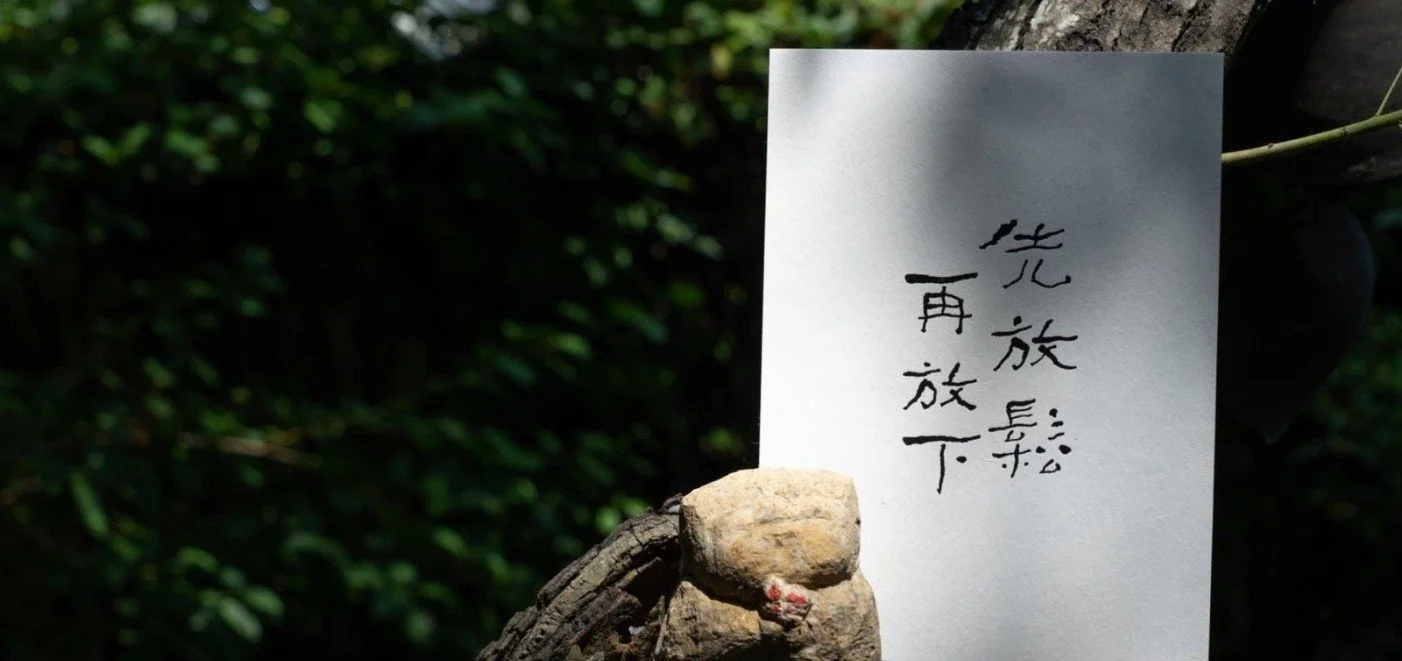 先放鬆
再放下